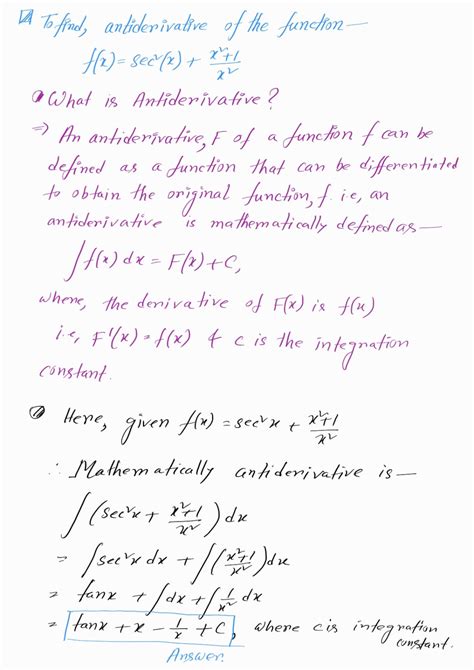 To find, antiderivative of the function—
f(x) = sec²(x) + (x²+1)/x²
What is Antiderivative?
⇒ An antiderivative, F of a function f can be
defined as a function that can be differentiated
to obtain the original function, f. i.e, an
antiderivative is mathematically defined as—
∫f(x) dx = F(x) + C,
where, the derivative of F(x) is f(x)
i.e, F'(x) = f(x) & C is the integration
constant.
Here, given f(x) = sec²x + (x²+1)/x²
∴ Mathematically antiderivative is—
∫(sec²x + (x²+1)/x²) dx
= ∫sec²x dx + ∫((x²+1)/x²) dx
= tanx + ∫dx + ∫1/x² dx
= tanx + x - 1/x + C, where c is integration
constant.
Answer.